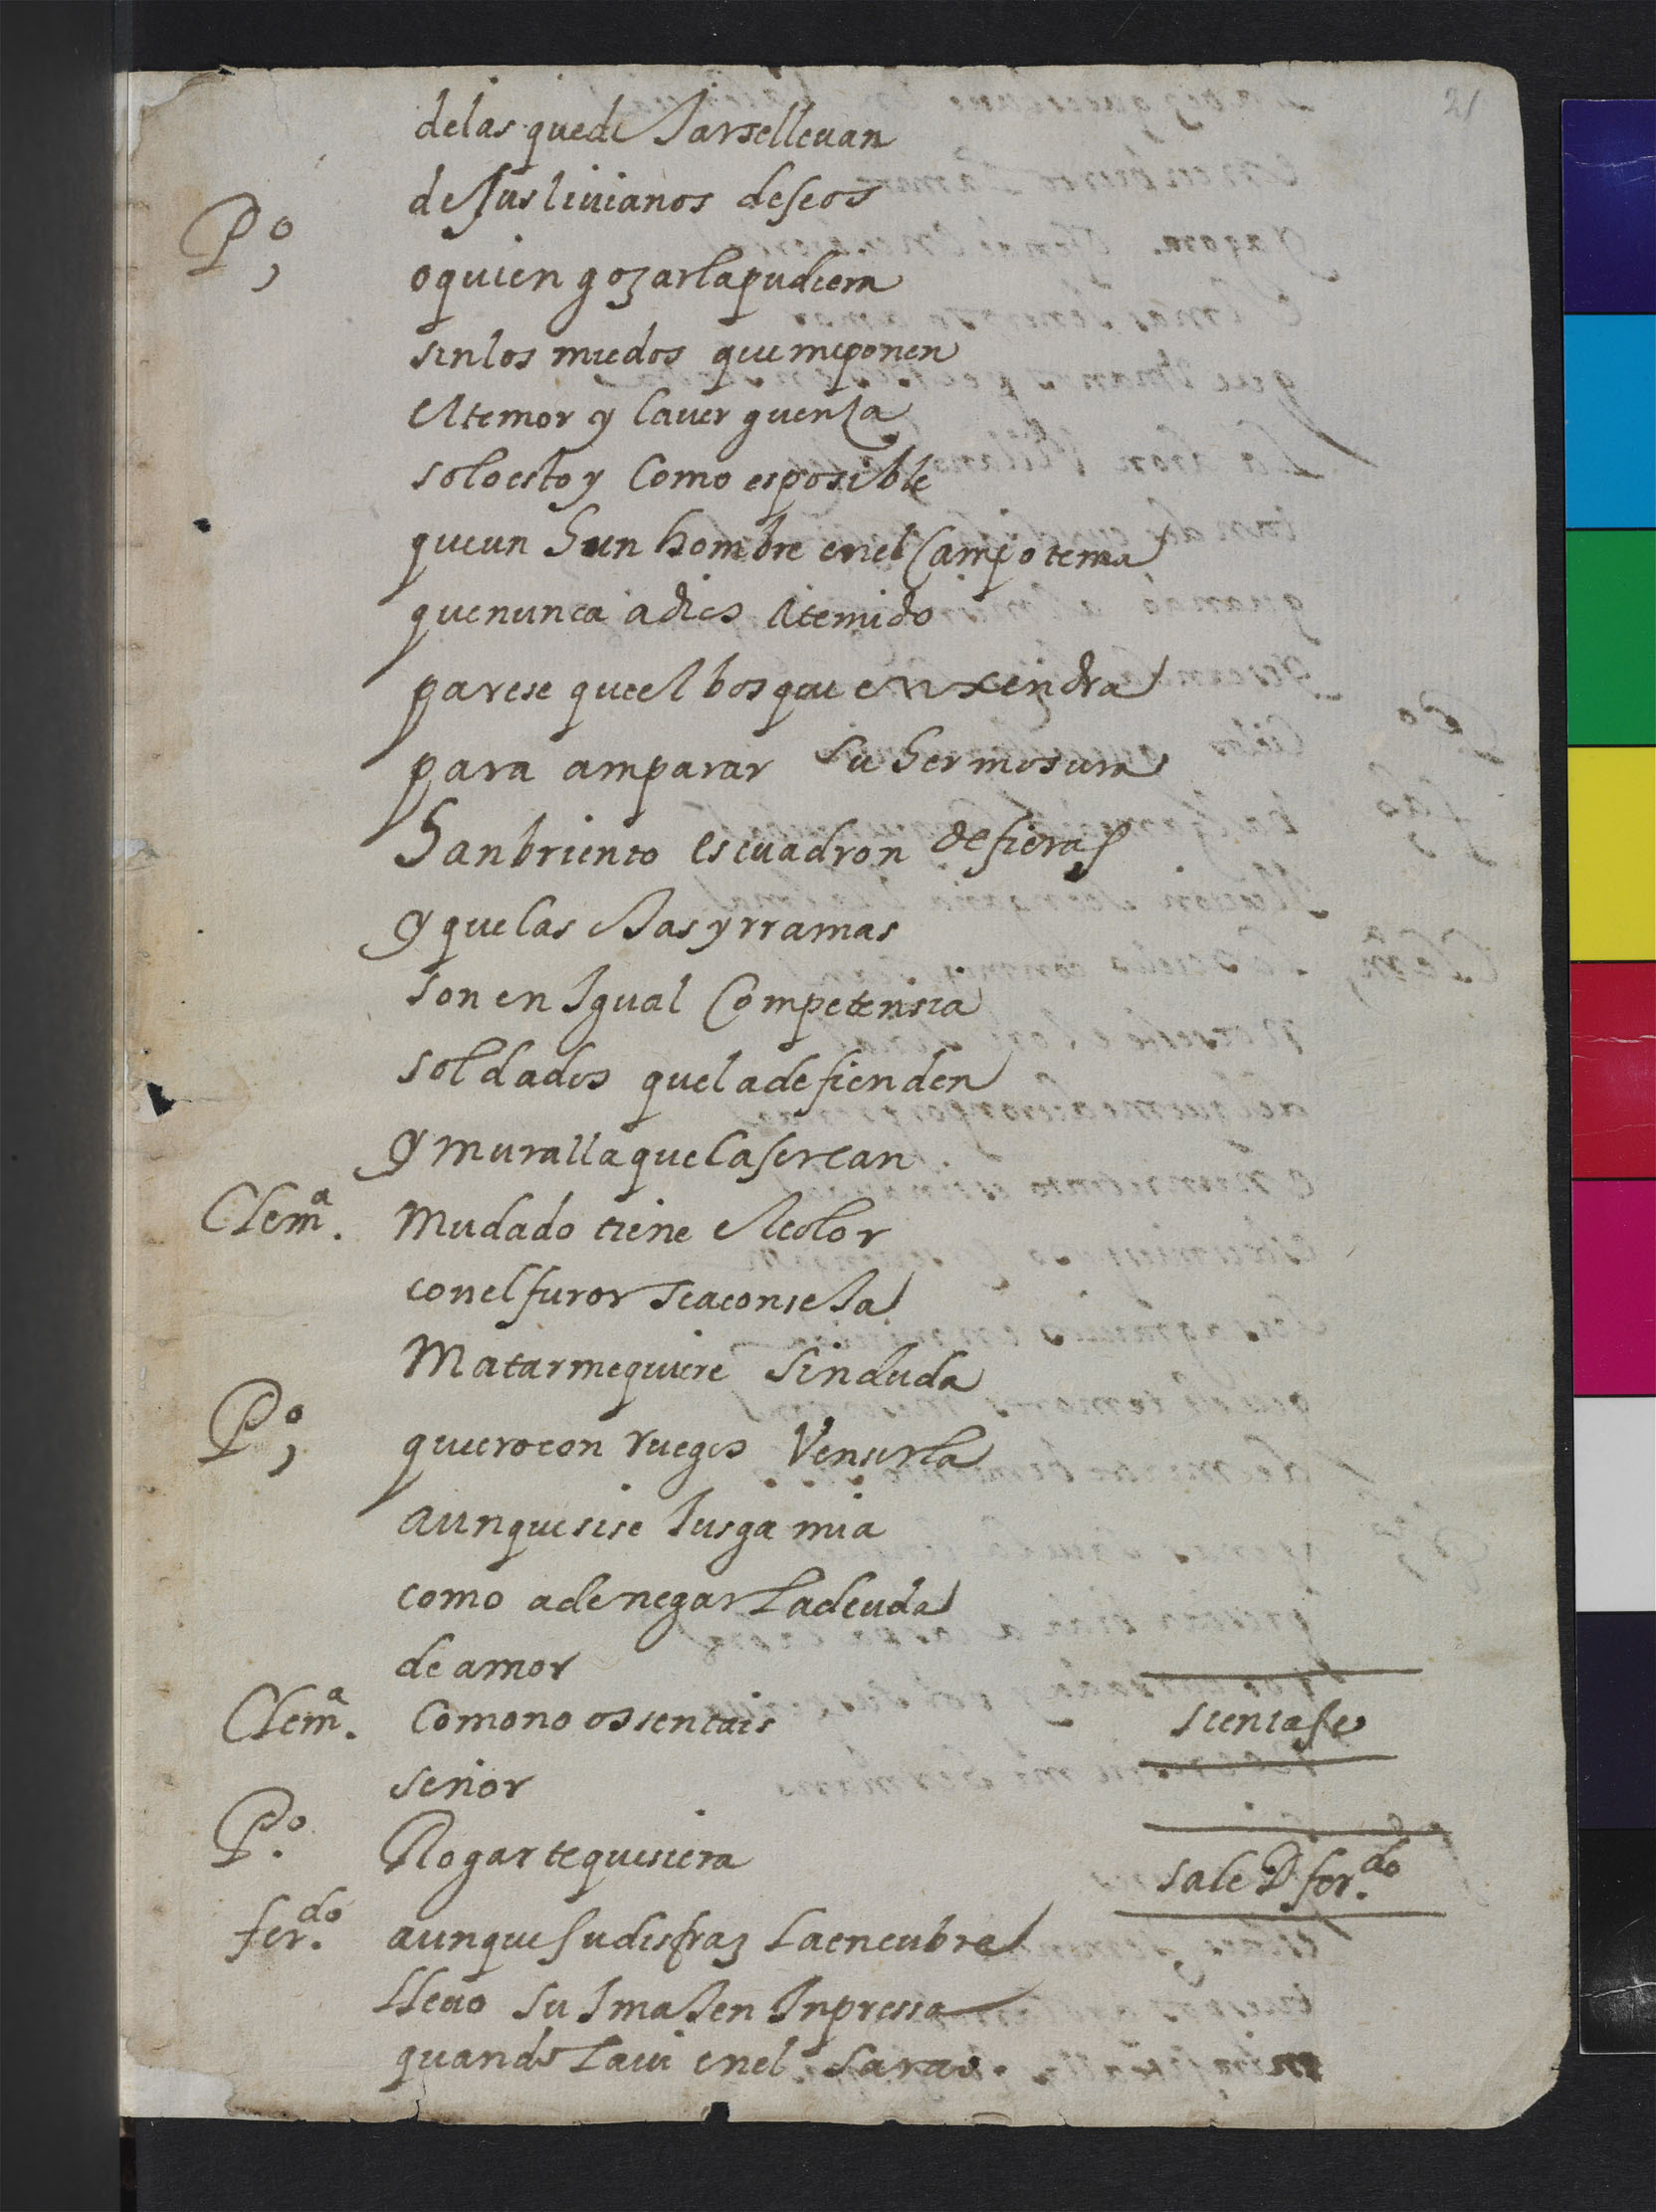 21
delas quede Jarsellevan
de sus livianos deseos
Pº, o quien gozarla pudiera
sin los miedos que me ponen
el temor y la verguenza
solo estoy Como es posible
que un hun hombre enel Campo tema
que nunca a dies a temido
parese que el bosque enxendra
para amparar su hermosura
hanbriento escuadron de fieras
y que las ojas y rramas
son en Igual Competensia
soldados que la defienden
y muralla que la sercan
Clemª. Mudado tiene el color
con el furor se aconseja
Matarme quiere sin duda
Pº, quiero con ruegos Venserla
aunque si se Jusga mia
como a de negar la deuda
de amor
Clemª. Como no os sentais
sientase
señor
Pº. Rogarte quisiera
sale D fer.do
fer.do aunque su disfraz la encubre
llevo su Imajen Inpressa
quando la vi enel sarao.